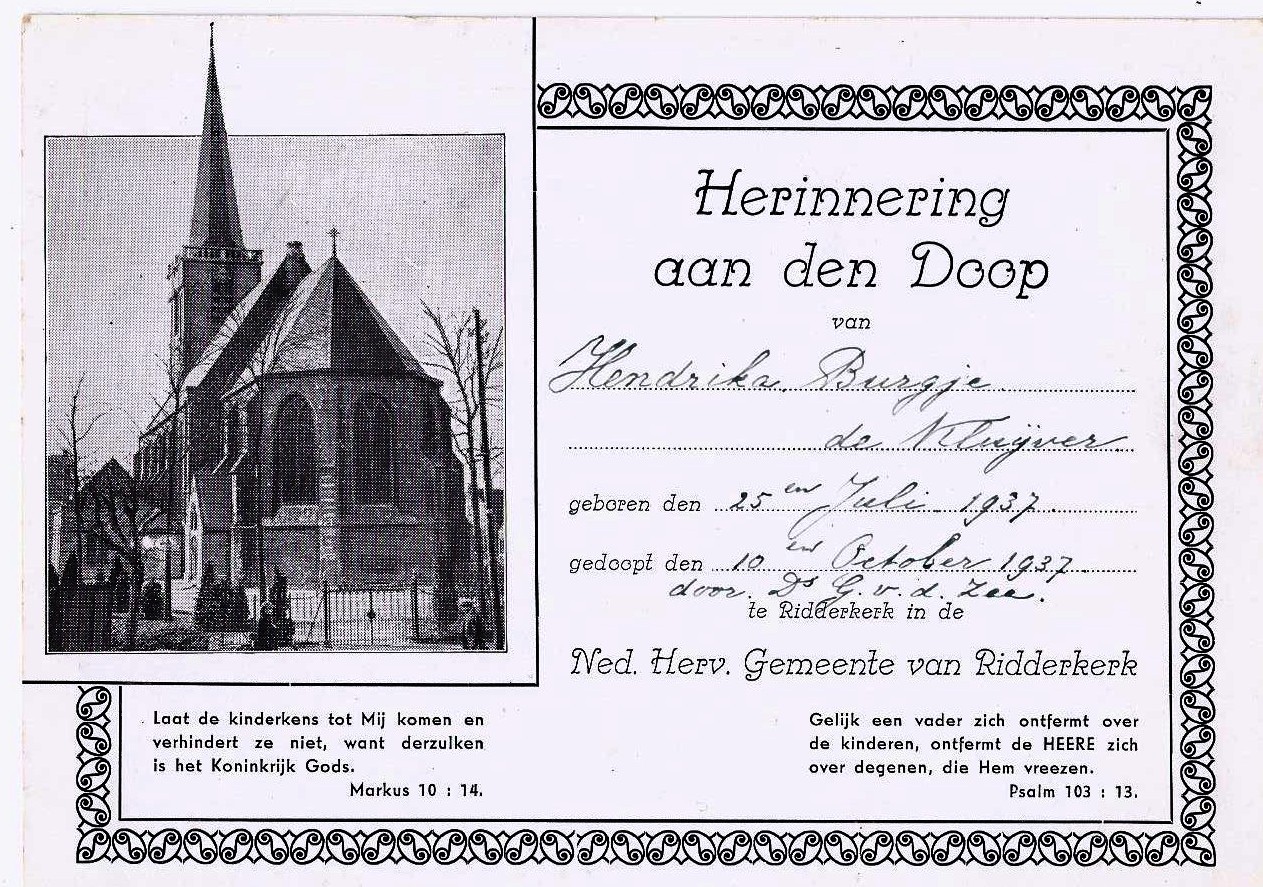 Herinnering
aan den Doop
van
Hendrika Burgje
de Kluijver
geboren den 25en Juli 1937.
gedoopt den 10en October 1937.
door Ds G. v. d. Zee.
te Ridderkerk in de
Ned. Herv. Gemeente van Ridderkerk
Laat de kinderkens tot Mij komen en
verhindert ze niet, want derzulken
is het Koninkrijk Gods.
Markus 10 : 14.
Gelijk een vader zich ontfermt over
de kinderen, ontfermt de HEERE zich
over degenen, die Hem vreezen.
Psalm 103 : 13.